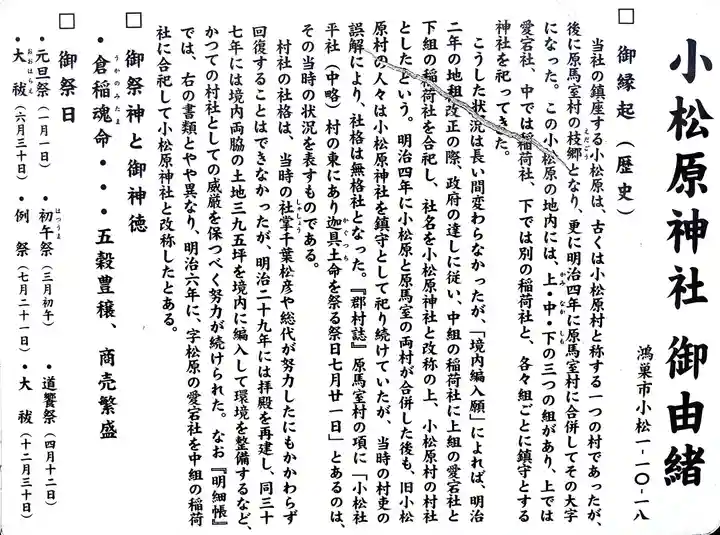 小松原神社 御由緒
鴻巣市小松一-一〇-一八
□ 御縁起(歴史)
当社の鎮座する小松原は、古くは小松原村と称する一つの村であったが、
後に原馬室村の枝郷となり、更に明治四年に原馬室村に合併してその大字
になった。この小松原の地内には、上・中・下の三つの組があり、上では
愛宕社、中では稲荷社、下では別の稲荷社と、各々組ごとに鎮守とする
神社を祀ってきた。
こうした状況は長い間変わらなかったが、「境内編入願」によれば、明治
二年の地租改正の際、政府の達しに従い、中組の稲荷社に上組の愛宕社と
下組の稲荷社を合祀し、社名を小松原神社と改称の上、小松原村の村社
としたという。明治四年に小松原と原馬室の両村が合併した後も、旧小松
原村の人々は小松原神社を鎮守として祀り続けていたが、当時の村吏の
誤解により、社格は無格社となった。『郡村誌』原馬室村の項に「小松社
平社(中略)村の東にあり迦具土命を祭る祭日七月廿一日」とあるのは、
その当時の状況を表すものである。
村社の社格は、当時の社掌千葉松彦や総代が努力したにもかかわらず
回復することはできなかったが、明治二十九年には拝殿を再建し、同三十
七年には境内両脇の土地三九五坪を境内に編入して環境を整備するなど、
かつての村社としての威厳を保つべく努力が続けられた。なお『明細帳』
では、右の書類とやや異なり、明治六年に、字松原の愛宕社を中組の稲荷
社に合祀して小松原神社と改称したとある。
□ 御祭神と御神徳
・倉稲魂命・・・五穀豊穣、商売繁盛
□ 御祭日
・元旦祭(一月一日) ・初午祭(三月初午) ・道饗祭(四月十二日)
・大祓(六月三十日) ・例祭(七月二十一日) ・大祓(十二月三十日)